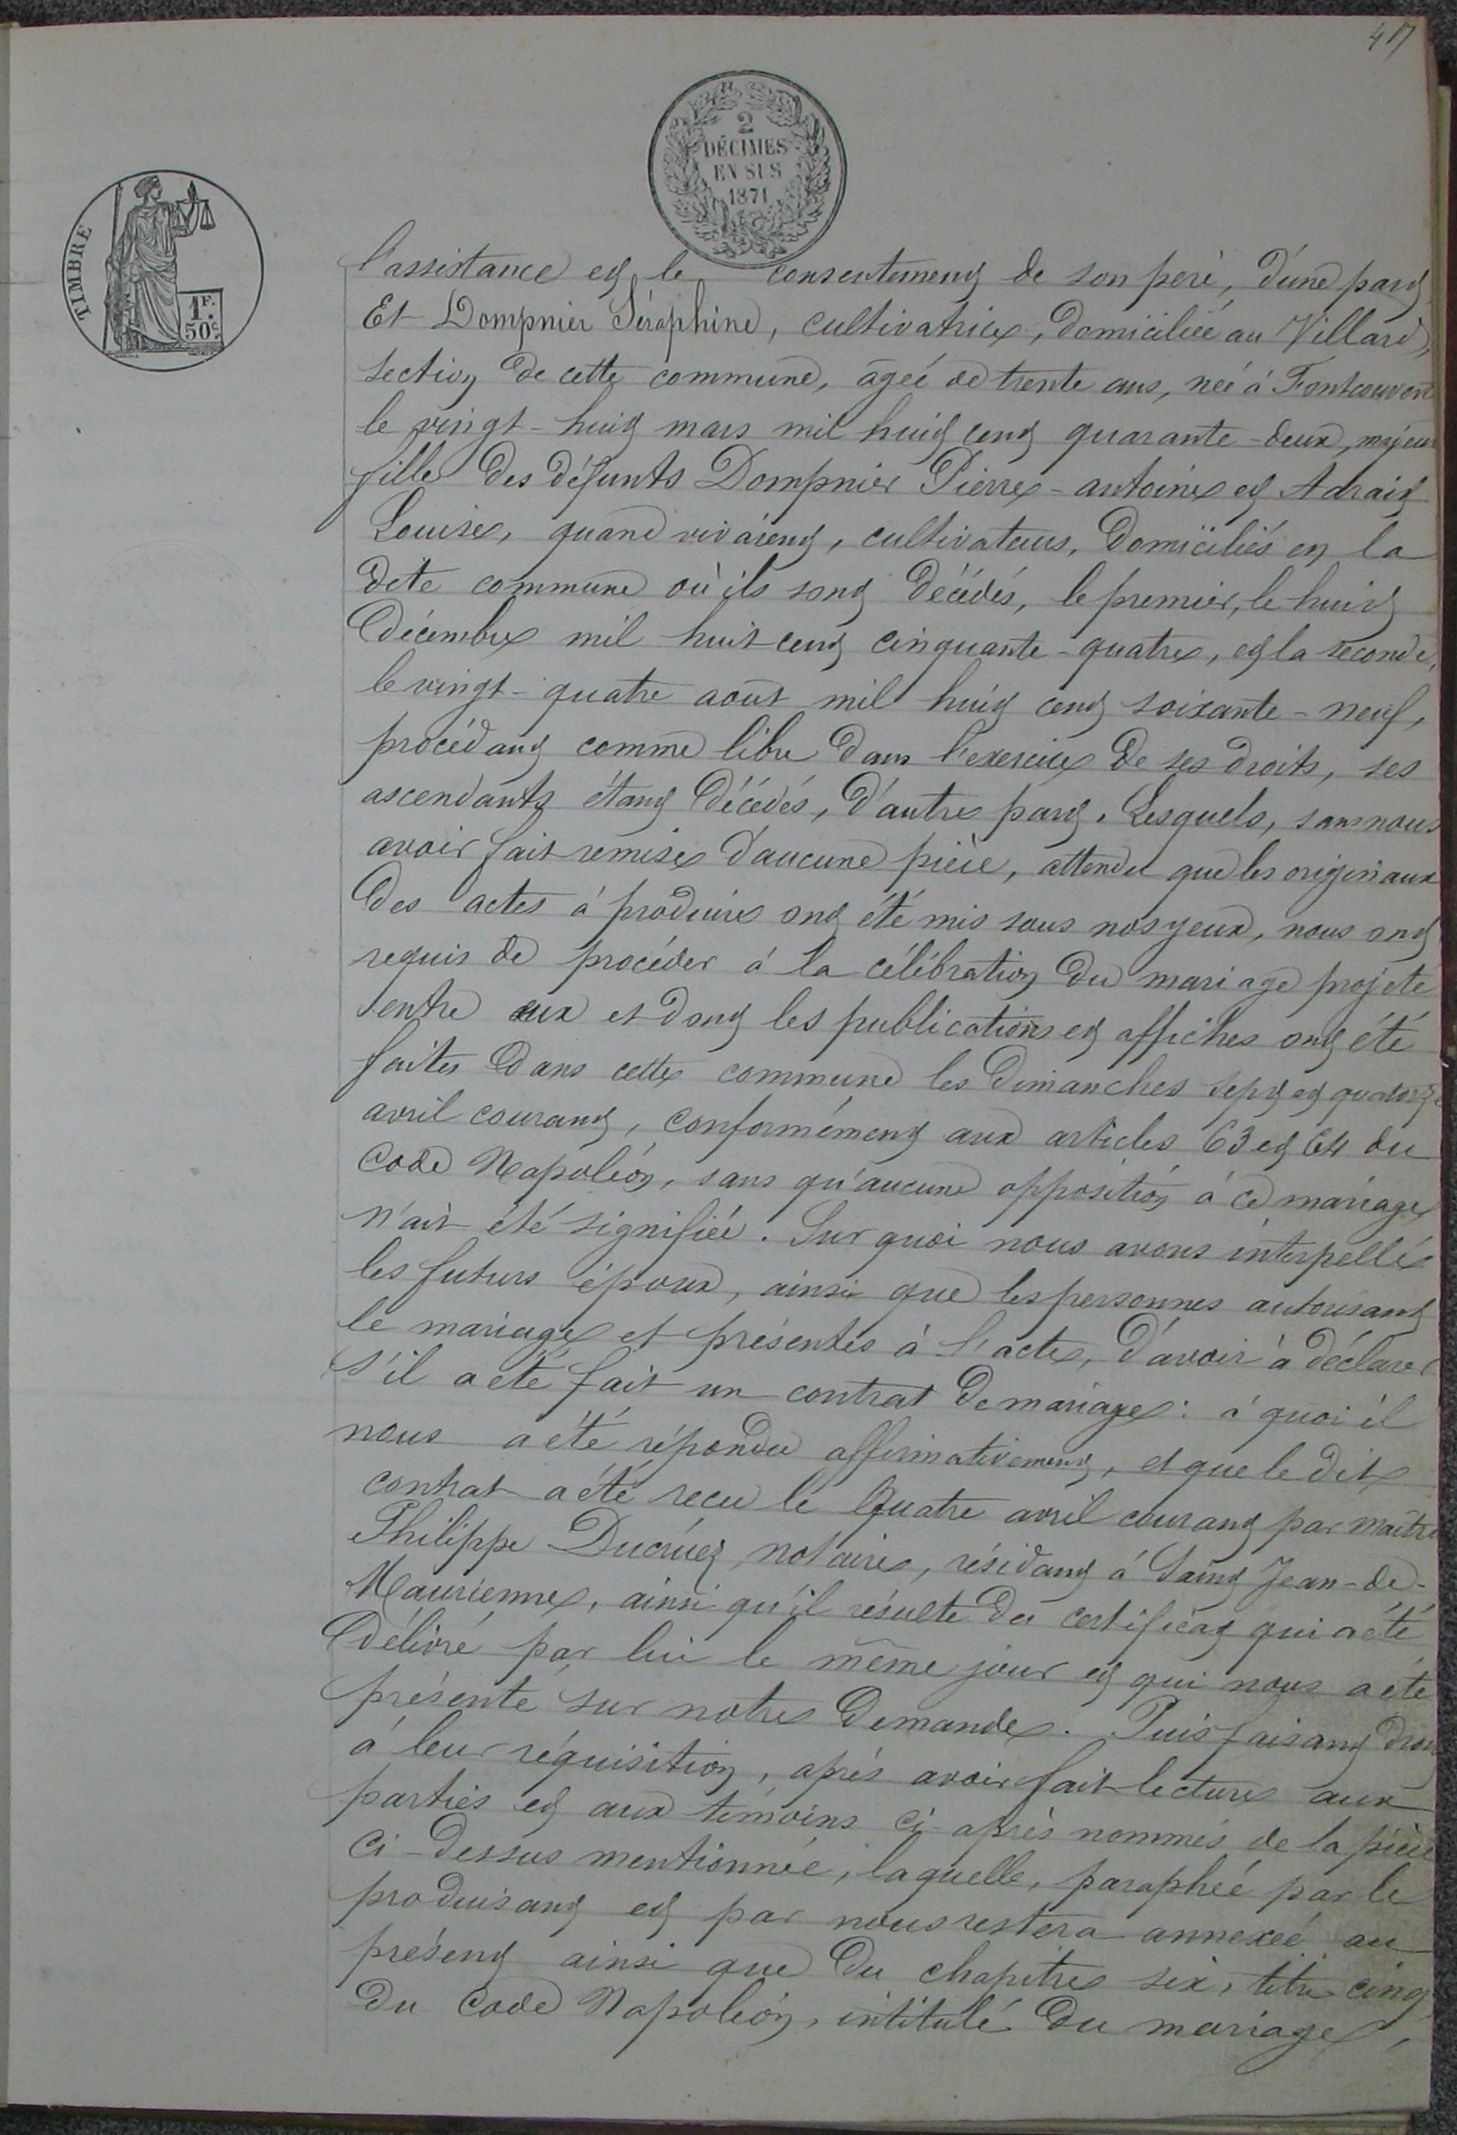 417
2
DÉCIMES
EN SUS
1871
TIMBRE
1F.
50c.
l'assistance et le consentement de son père, d'une part,
Et Dompnier Séraphine, cultivatrice, domiciliée au Villard,
section de cette commune, agée de trente ans, née à Fontcouvert
le vingt-huit mars mil huit cent quarante-deux, majeure
fille des défunts Dompnier Pierre-antoine et Adrait
Louise, quand vivaient, cultivateurs, domiciliés en la
dite commune où ils sont décédés, le premier, le huit
Décembre mil huit cent cinquante-quatre, et la seconde,
le vingt-quatre août mil huit cent soixante-neuf,
procédant comme libre dans l'exercice de ses droits, ses
ascendants étant décédés, d'autre part. Lesquels, sans nous
avoir fait remise d'aucune pièce, attendu que les originaux
des actes à produire ont été mis sous nos yeux, nous ont
requis de procéder à la célébration du mariage projeté
entre eux et dont les publications et affiches ont été
faites dans cette commune les dimanches sept et quatorze
avril courant, conformément aux articles 63 et 64 du
Code Napoléon, sans qu'aucune opposition à ce mariage
n'ait été signifiée. Sur quoi nous avons interpellé
les futurs époux, ainsi que les personnes autorisant
le mariage et présentes à l'acte, d'avoir à déclarer
s'il a été fait un contrat de mariage: à quoi il
nous a été répondu affirmativement, et que le dit
contrat a été reçu le Quatre avril courant par maître
Philippe Ducruez notaire, résidant à Saint Jean-de-
Maurienne, ainsi qu'il résulte du certificat qui a été
délivré par lui le même jour et qui nous a été
présenté sur notre demande. Puis faisant droit
à leur réquisition, après avoir fait lecture aux
parties et aux témoins ci-après nommés de la pièce
ci-dessus mentionnée, laquelle, paraphée par le
produisant et par nous restera annexée au
présent ainsi que du chapitre six, titre cinq
du Code Napoléon, intitulé du mariage,